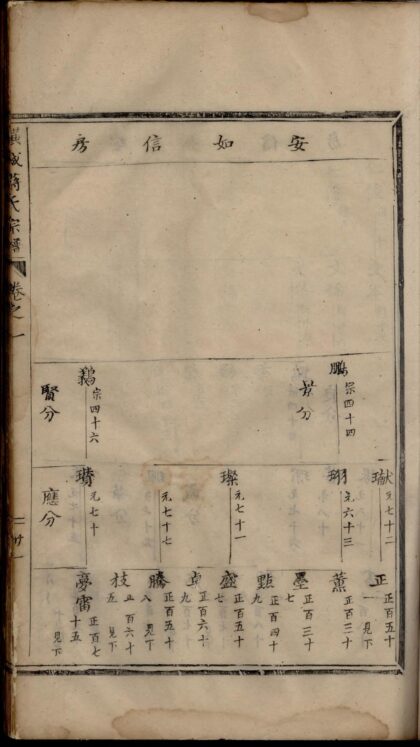 安如信房
鵬
宗四十四
景分
鵝
宗四十六
賢分
瓛
元七十二
元六十三
璨
元七十一
元七十七
元七十
應分
正
正百五十一
見下
薰
正百二十
墨
正百三十七
點
正百四十九
盛
正百五十七
正百六十九
騰
正百五十八
見下
技
正百六十五
見下
夢雷
正百七十五
見下
蔣氏宗譜
卷之一